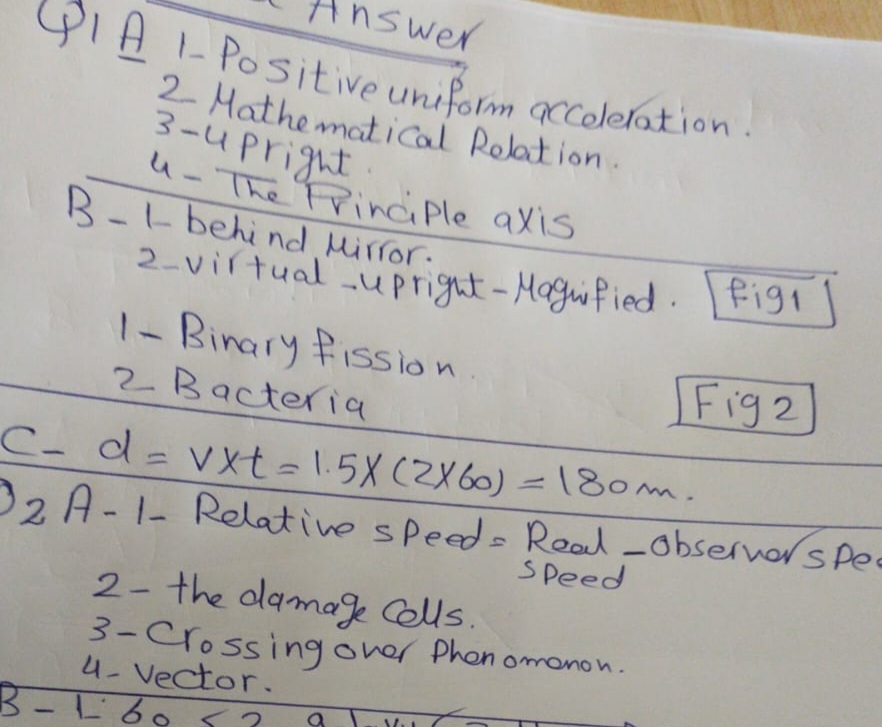 Answer
Q1 A 1- Positive uniform acceleration.
2- Mathematical Relation.
3- upright.
4- The Principle axis
B- 1- behind Mirror.
2- virtual - upright - Magnified. Fig1
1- Binary fission.
2- Bacteria Fig 2
C- d = v x t = 1.5 X (2X60) = 180m.
Q2 A-1- Relative speed = Real - observer spe
speed
2- the damage Cells.
3- Crossing over Phenomenon.
4- vector.
B- 1- 60